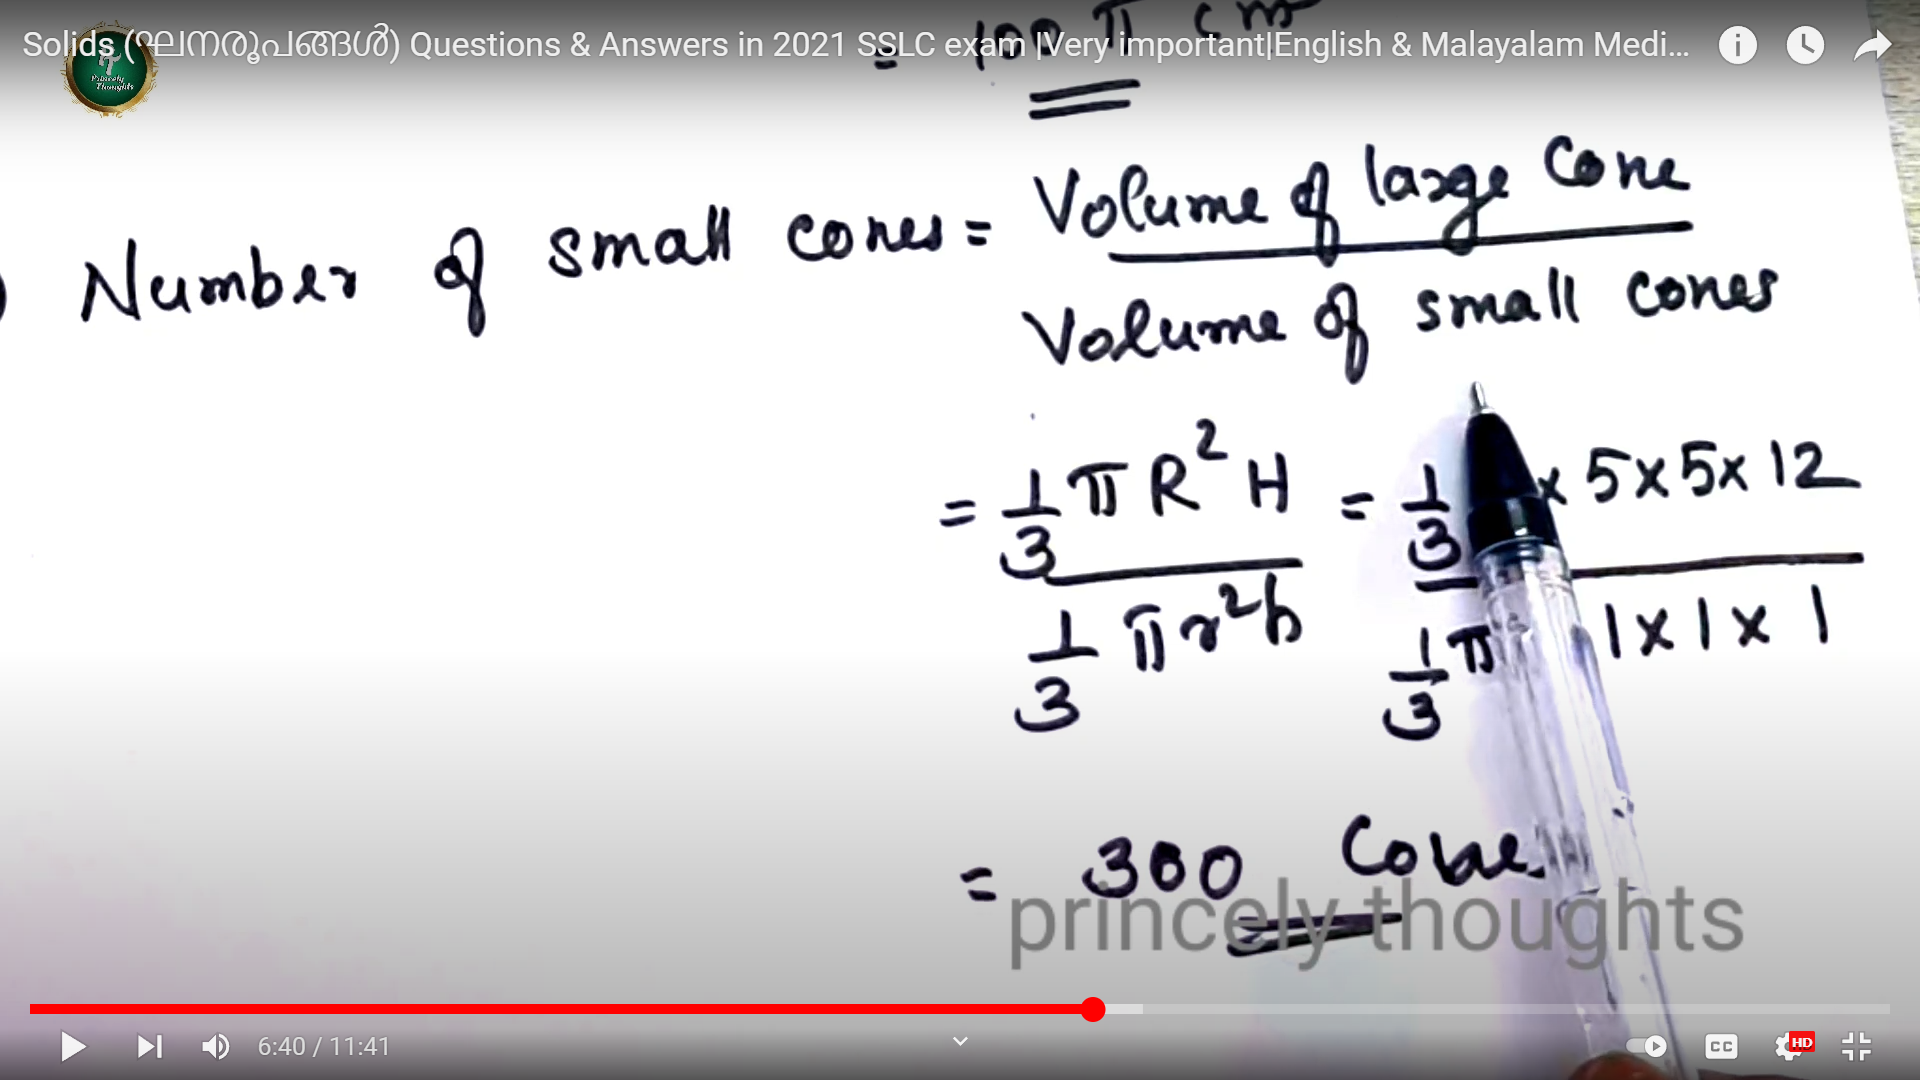 = 100 π cm
Solids (ഘനരൂപങ്ങൾ) Questions & Answers in 2021 SSLC exam |Very important|English & Malayalam Medi...
Princely
Thoughts
Number of small cones = Volume of large Cone
Volume of small cones
= 1/3 π R² H = 1/3 x 5 x 5 x 12
1/3 π r² h 1/3 π 1 x 1 x 1
= 300 Cone
princely thoughts
6:40 / 11:41
CC HD